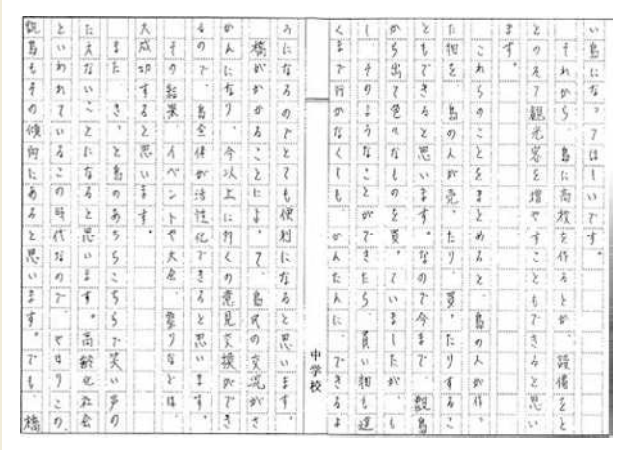 い島になってほしいです。
それから、島に高校を作るとか、設備をと
とのえて観光客を増やすこともできると思い
ます。
これらのことをまとめると、島の人が作っ
た物を、島の人が売ったり、買ったりするこ
ともできると思います。なので今まで、観島
から出て色々なものを買っていましたが、も
し、そのようなことができたら、買い物も遠
くまで行かなくても、かんたんに、できるよ
中学校
うになるのでとても便利になると思います。
橋がかかることによって、島民の交流がさ
かんになり、今以上に多くの意見交換ができ
るので、島全体が活性化できると思います。
その結果、イベントや大会、祭りなどは、
大成功すると思います。
また、きっと島のあちらこちらで笑い声の
たえないことになると思います。高齢化社会
といわれているこの時代なので、やはりこの
観島もその傾向にあると思います。でも、橋